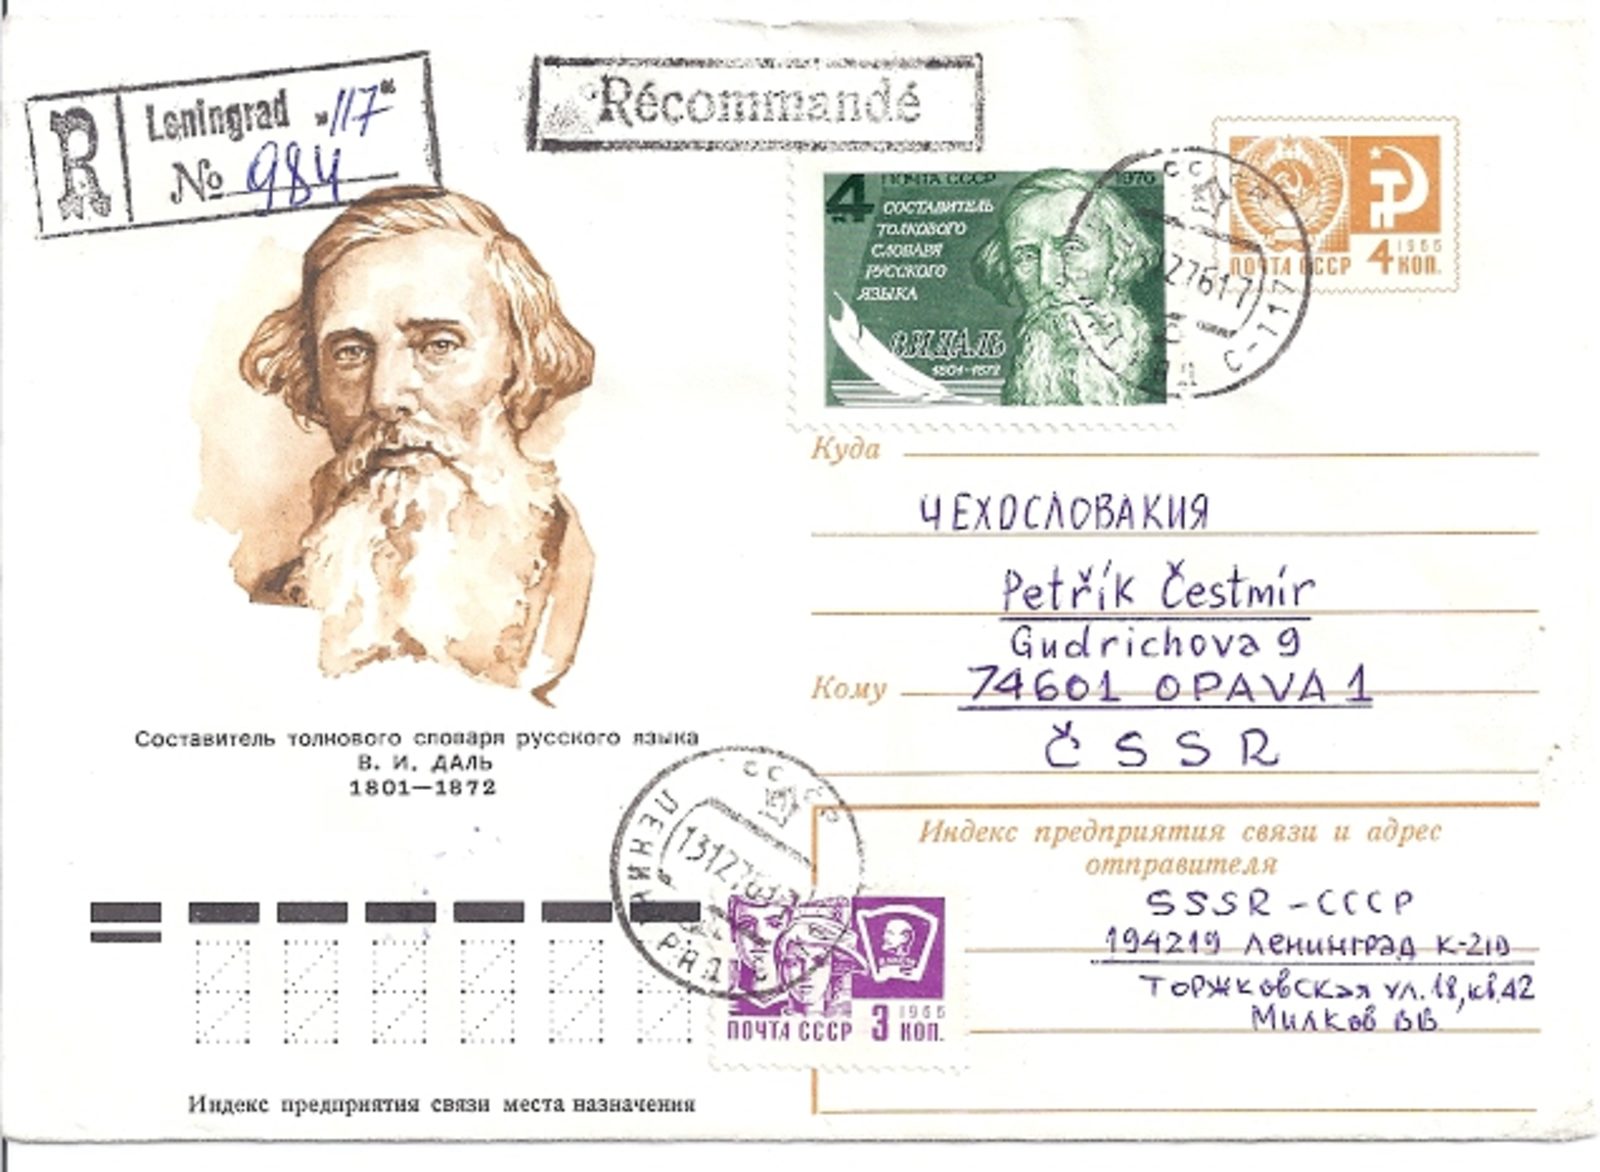 R Leningrad "117"
№ 984
Récommandé
4 ПОЧТА СССР 1976
СОСТАВИТЕЛЬ
ТОЛКОВОГО
СЛОВАРЯ
РУССКОГО
ЯЗЫКА
В.И.ДАЛЬ
1801-1872
1966
ПОЧТА СССР 4 КОП.
СССР
С-717
Куда
ЧЕХОСЛОВАКИЯ
Petřík Čestmír
Gudrichova 9
Кому 74601 OPAVA 1
ČSSR
Составитель толкового словаря русского языка
В. И. ДАЛЬ
1801—1872
СССР
ЛЕНИНГРАД
Индекс предприятия связи и адрес
отправителя
SSSR - СССР
194219 ЛЕНИНГРАД К-210
ТОРЖКОВСКАЯ УЛ. 18, КВ. 42
МИЛКОВ ВВ
1966
ПОЧТА СССР 3 КОП.
Индекс предприятия связи места назначения